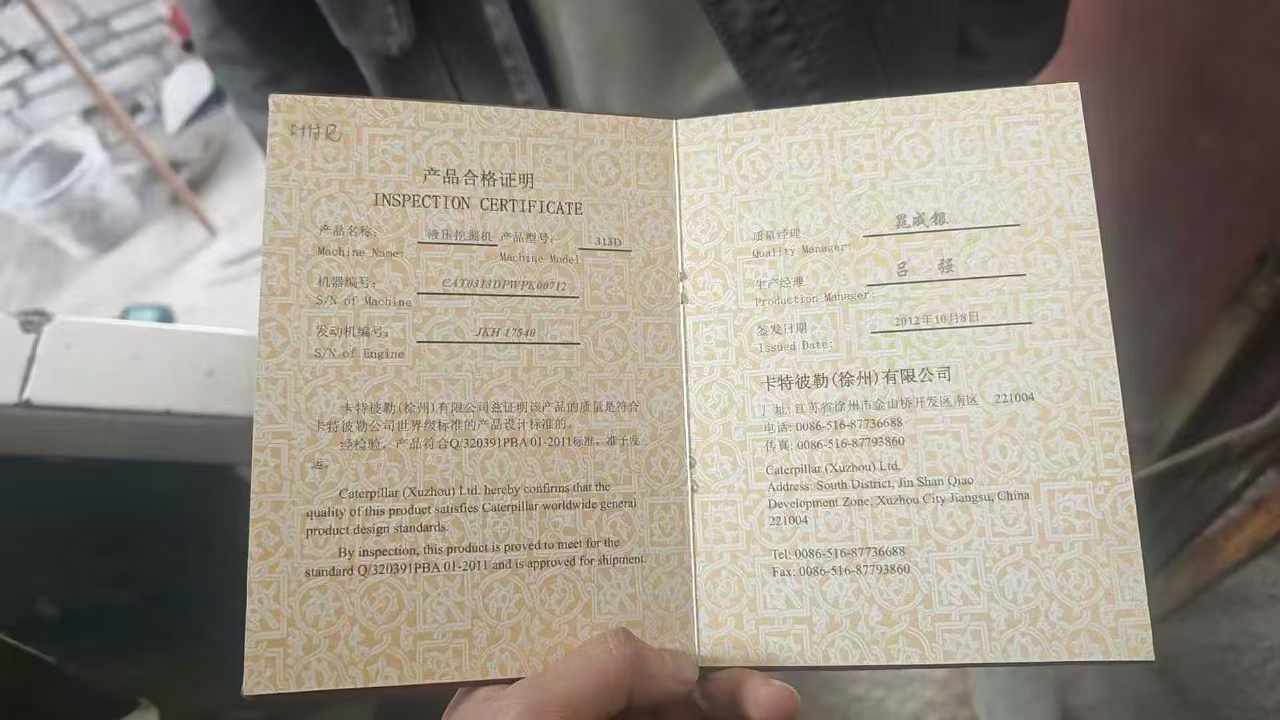 产品合格证明
INSPECTION CERTIFICATE
产品名称: 液压挖掘机 产品型号: 313D
Machine Name: Machine Model
机器编号: CAT0313DPWPK00712
S/N of Machine
发动机编号: JKH 17540
S/N of Engine
卡特彼勒(徐州)有限公司兹证明该产品的质量是符合
卡特彼勒公司世界级标准的产品设计标准的。
经检验，产品符合Q/320391PBA 01-2011标准，准予发
运。
Caterpillar (Xuzhou) Ltd. hereby confirms that the
quality of this product satisfies Caterpillar worldwide general
product design standards.
By inspection, this product is proved to meet for the
standard Q/320391PBA 01-2011 and is approved for shipment.
质量经理 晁成银
Quality Manager:
生产经理 吕 强
Production Manager:
签发日期 2012年10月8日
Issued Date:
卡特彼勒(徐州)有限公司
厂址: 江苏省徐州市金山桥开发区南区 221004
电话: 0086-516-87736688
传真: 0086-516-87793860
Caterpillar (Xuzhou) Ltd.
Address: South District, Jin Shan Qiao
Development Zone, Xuzhou City Jiangsu, China
221004
Tel: 0086-516-87736688
Fax: 0086-516-87793860